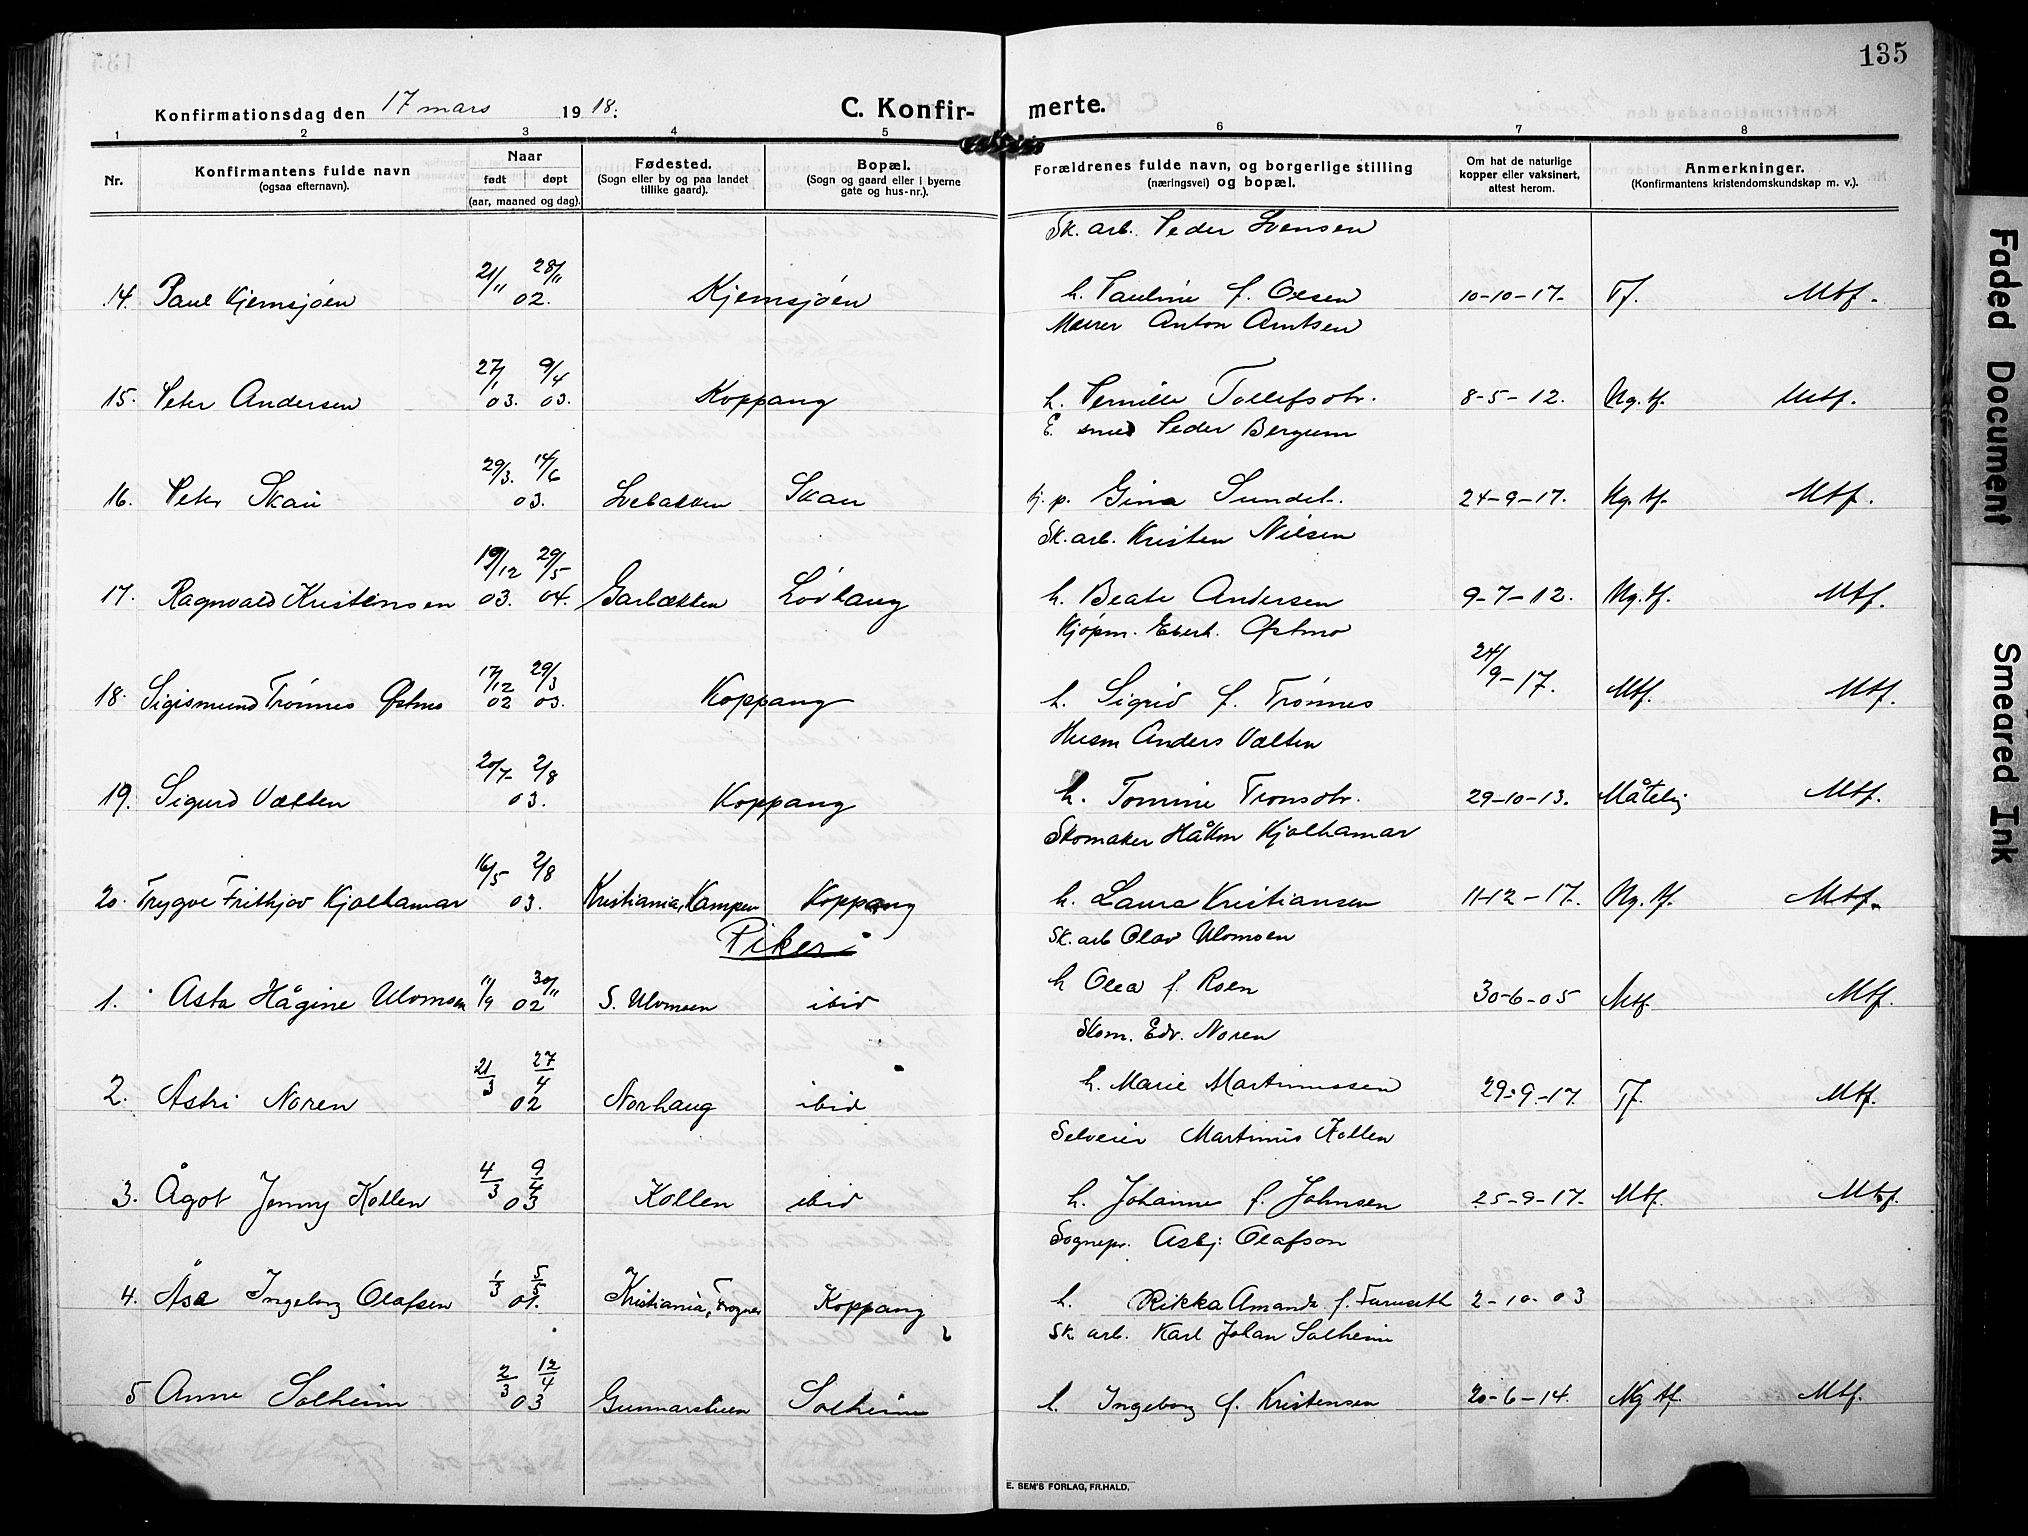 135
Konfirmationsdag den 17 mars 1918.
C. Konfir- merte.
1 2 3 4 5 6 7 8
Nr. Konfirmantens fulde navn (ogsaa efternavn). Naar født døpt (aar, maaned og dag). Fødested. (Sogn eller by og paa landet tillike gaard). Bopæl. (Sogn og gaard eller i byerne gate og hus-nr.). Forældrenes fulde navn, og borgerlige stilling (næringsvei) og bopæl. Om hat de naturlige kopper eller vaksinert, attest herom. Anmerkninger. (Konfirmantens kristendomskundskap m. v.).
Sk. arb. Peder Svensen
14. Paul Kjemsjøen 21/11 28/11 02. Kjemsjøen h. Pauline f. Olsen 10-10-17. Tf. Mtf.
Murer Anton Amtsen
15. Peter Andersen 27/1 03. 9/4 03. Koppang h. Pernille Tollefsdtr. 8-5-12. Ng. tf. Mtf.
E. smed Peder Bergum
16. Peter Skau 29/3. 14/6 03. Skau p. Gina Sundet. 24-9-17. Ng. tf. Mtf.
Sk. arb. Kristen Nilsen
17. Ragnvald Kristensen 19/12 03. 29/5 04. Garbakken Løvhaug h. Beate Andersen 9-7-12. Ng. tf. Mtf.
Kjøpm. Eberh. Østmo
18. Sigismund Trønnes Østmo 17/12 02 29/3 03. Koppang h. Sigrid f. Trønnes 24/9-17. Mtf. Mtf.
Husm Anders Vælten
19. Sigurd Vælten 20/7 2/8 03. Koppang h. Tomine Tronsdtr. 29-10-13. Måtelig Mtf.
Skomaker Håkon Kjølhamar
20. Trygve Frithjov Kjølhamar 16/5 2/8 03. Kristiania, Kampen Koppang h. Laura Kristiansen 11-12-17. Ng. tf. Mtf.
Piker
Sk. arb Olav Ulvmoen
1. Asta Hågine Ulvmoen 11/9 30/11 02 S. Ulvmoen ibid h Olea f. Roen 30-6-05 Mtf. Mtf.
Skom. Edv. Noren
2. Astri Noren 21/3 27/4 02 Norhaug ibid h. Marie Martinussen 29-9-17. Tf. Mtf.
Selveier Martinus Kollen
3. Ågot Jenny Kollen 4/3 9/4 03 Kollen ibid h. Johanne f. Johnsen 25-9-17. Mtf. Mtf.
Sognepr. Asbj. Olafson
4. Åsa Ingeborg Olafsen 1/3 5/5 01. Kristiania, Frogner Koppang h. Rikka Amanda f. Furuseth 2-10-03
Sk. arb. Karl Johan Solheim
5 Anne Solheim 2/3 12/4 03 Gunnarstuen Solheim h. Ingeborg f. Kristensen 20-6-14. Ng tf. Mtf.
E. SEM'S FORLAG, FR.HALD.
Faded Document
Smeared Ink